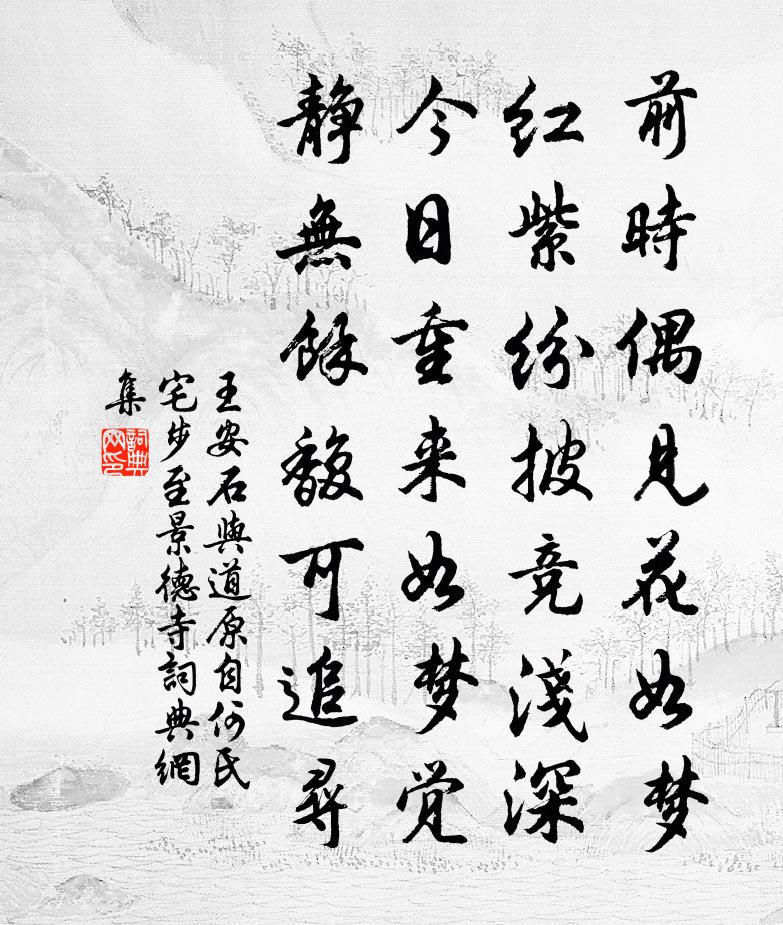 前時偶見花如梦
红紫纷披竞淺深
今日重来如梦觉
静無餘馥可追尋
王安石與道原自何氏
宅步至景德寺詞典網
集
詞典網印